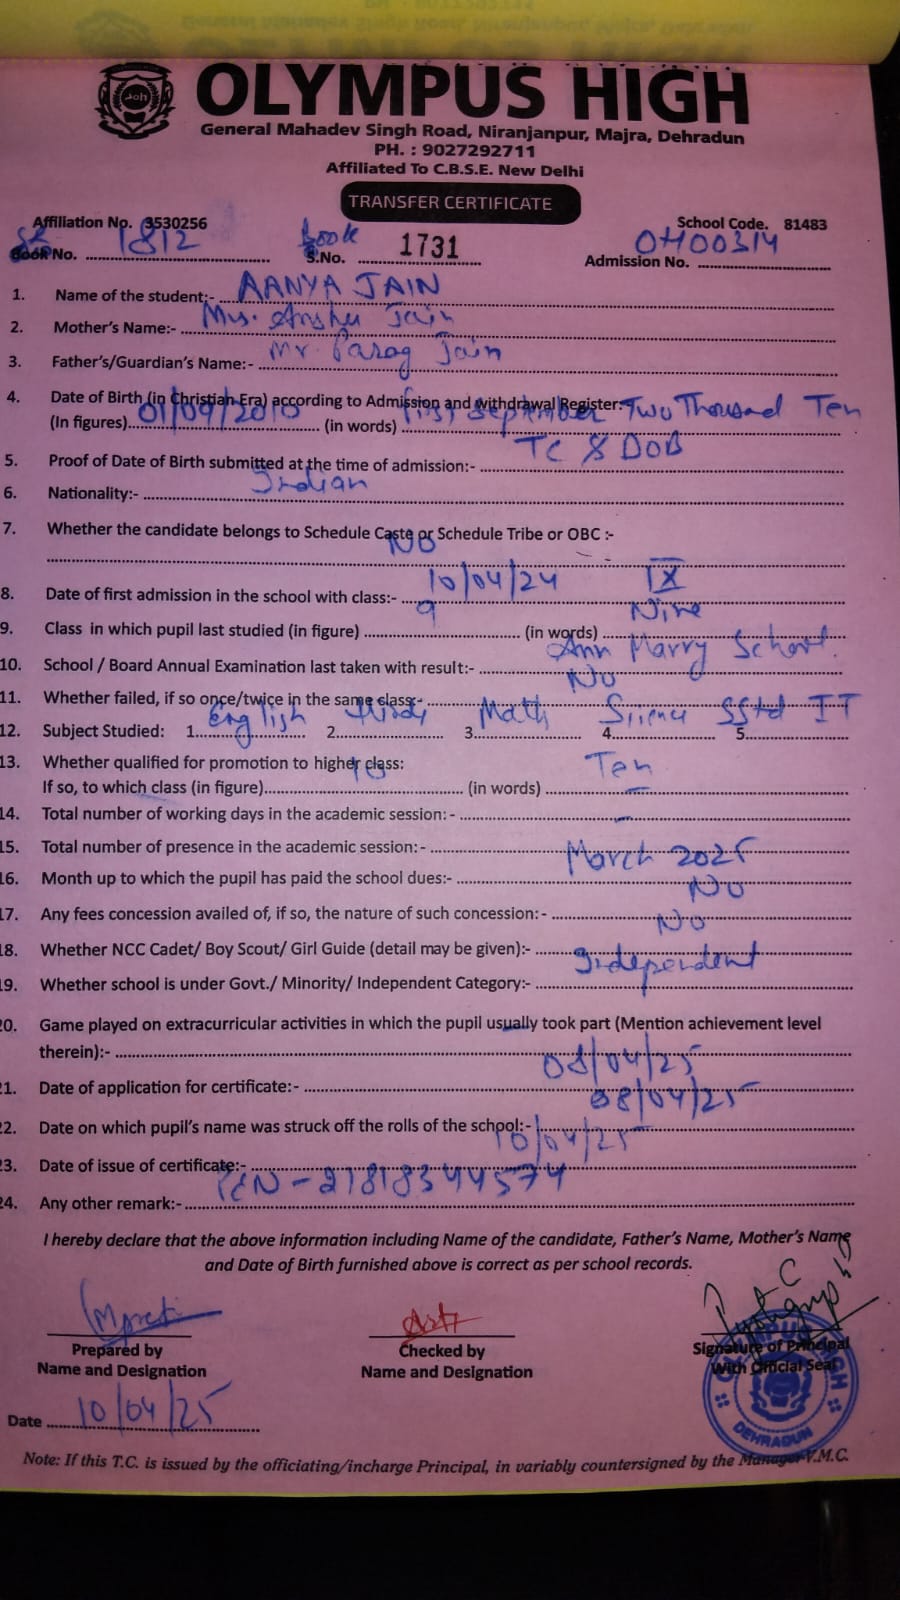 OLYMPUS HIGH
General Mahadev Singh Road, Niranjanpur, Majra, Dehradun
PH. : 9027292711
Affiliated To C.B.S.E. New Delhi
TRANSFER CERTIFICATE
Affiliation No. 3530256 School Code. 81483
Sr Book No. 1812 Book S.No. 1731 Admission No. OH00314
1. Name of the student:- AANYA JAIN
2. Mother's Name:- Mrs. Anshu Jain
3. Father's/Guardian's Name:- Mr. Parag Jain
4. Date of Birth (in Christian Era) according to Admission and withdrawal Register:
(In figures) 01/09/2010 (in words) first September Two Thousand Ten
5. Proof of Date of Birth submitted at the time of admission:- TC & DOB
6. Nationality:- Indian
7. Whether the candidate belongs to Schedule Caste or Schedule Tribe or OBC :-
NO
8. Date of first admission in the school with class:- 10/04/24 IX
9. Class in which pupil last studied (in figure) 9 (in words) Nine
10. School / Board Annual Examination last taken with result:- Ann Marry School.
11. Whether failed, if so once/twice in the same class:- No
12. Subject Studied: 1. English 2. Hindi 3. Math 4. Science 5. SStd IT
13. Whether qualified for promotion to higher class:
If so, to which class (in figure) 10 (in words) Ten
14. Total number of working days in the academic session: - –
15. Total number of presence in the academic session: - –
16. Month up to which the pupil has paid the school dues:- March 2025
17. Any fees concession availed of, if so, the nature of such concession: - No
18. Whether NCC Cadet/ Boy Scout/ Girl Guide (detail may be given):- No
19. Whether school is under Govt./ Minority/ Independent Category:- Independent
20. Game played on extracurricular activities in which the pupil usually took part (Mention achievement level
therein):-
21. Date of application for certificate:- 08/04/25
22. Date on which pupil's name was struck off the rolls of the school:- 08/04/25
23. Date of issue of certificate:- 10/04/25
24. Any other remark:- PEN - 21818344574
I hereby declare that the above information including Name of the candidate, Father's Name, Mother's Name
and Date of Birth furnished above is correct as per school records.
Prepared by Checked by Signature of Principal
Name and Designation Name and Designation With Official Seal
DEHRADUN
Date 10/04/25
Note: If this T.C. is issued by the officiating/incharge Principal, in variably countersigned by the Manager V.M.C.